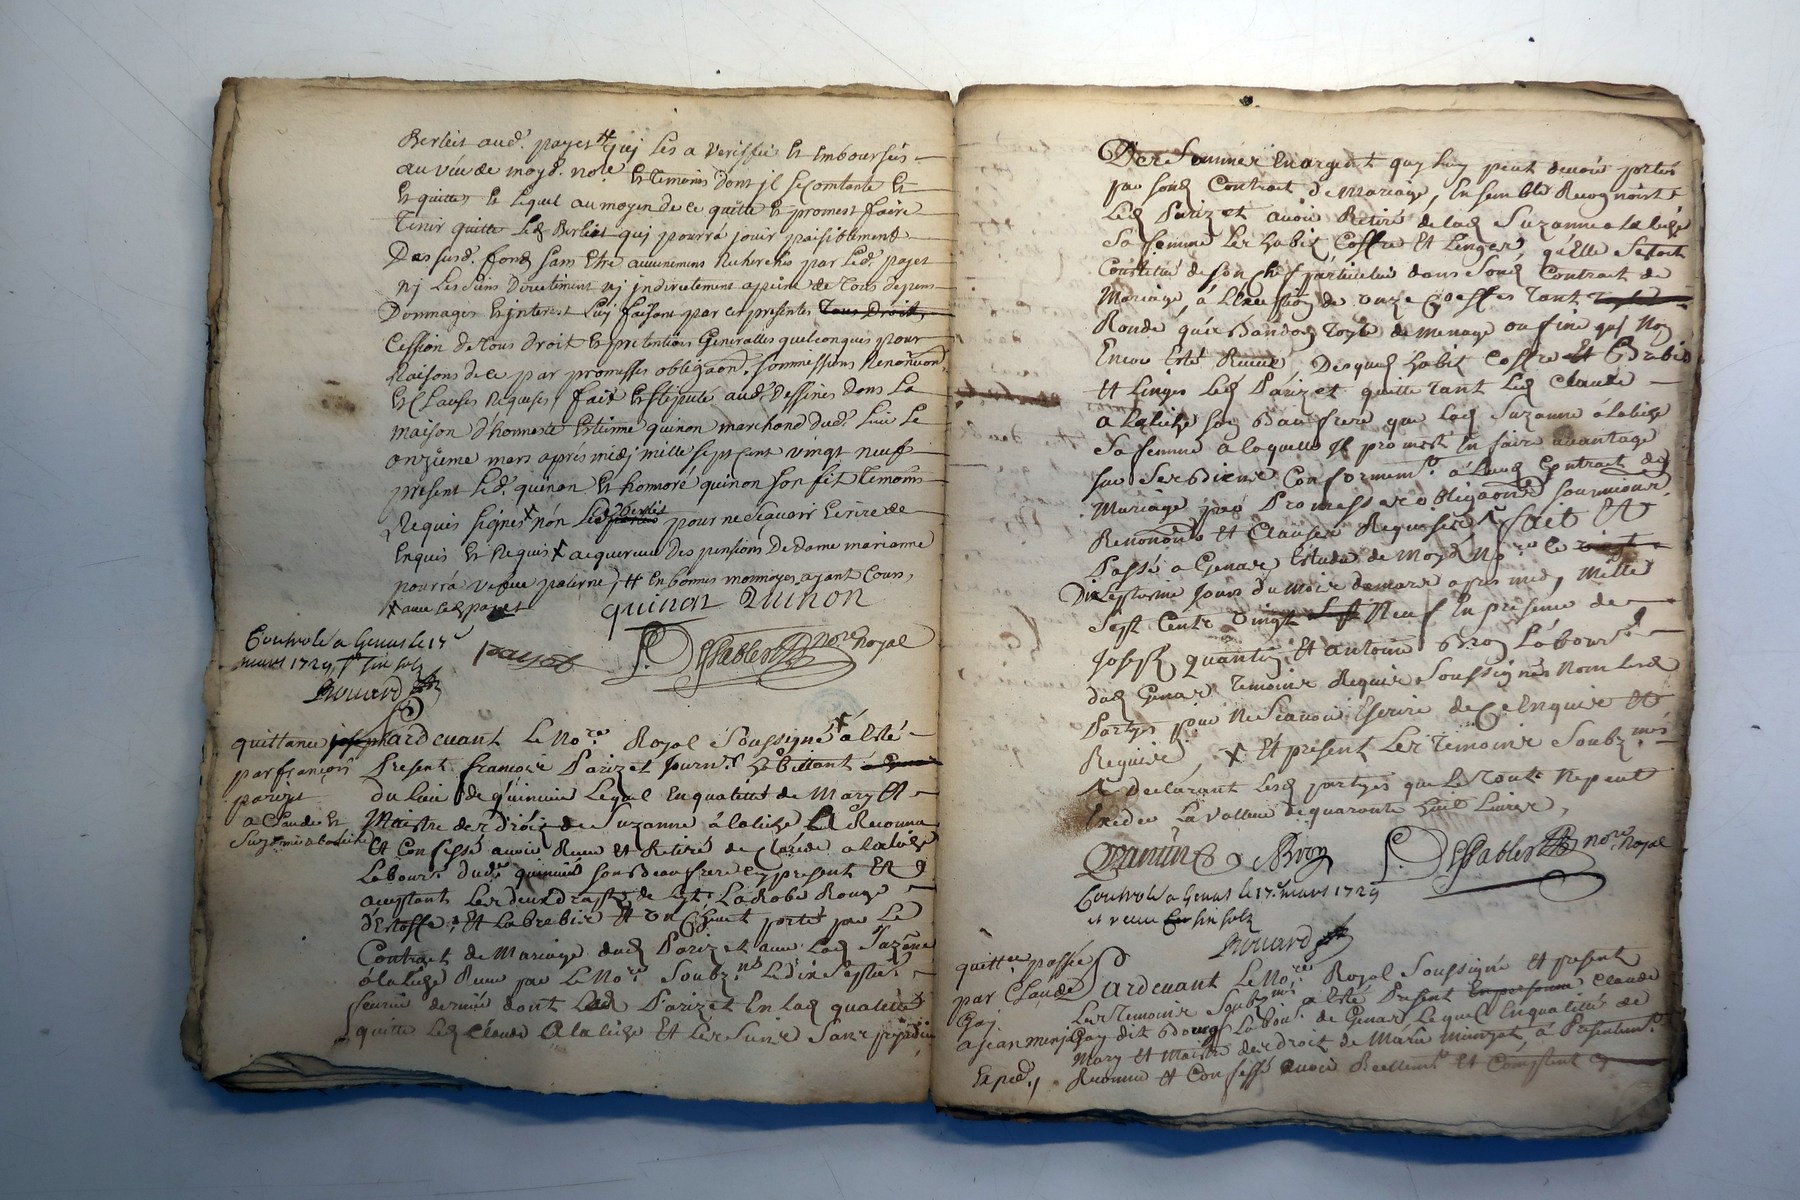 Berliet aud. payet # quj les a veriffié et emboursés
au vëu de moyd. nore. et temoins dont jl se contante et
et quitte, et lequel au moyen de ce quitte et promest faire
tenir quitte led Berliet quj pourrá jouir paisiblement
Des susd. fond sans etre aucunement Recherchés par led. payet
nj les siens directement nj jndirectement a peine de tous depens
Dommages et jnterest Luy faisant par ces presentes tous droit
Cession de tous droit et pretentions Generalles quelconques pour
Raisons de ce par promesses obligaon. sommissions Renonciaon.
et Clauses Requises, fait et stipulé aud. dessines dans La
maison d'honneste estienne quinon marchand dud. Lieu le
onzieme mars aprés midj mille sept cent vingt neuf
present led. quinon et honnoré quinon son fil temoins
Requis signés x non led berliet pour ne scavoir écrire de
Enquis et Requis x acquereur des pensions De dame marianne
pourrá veuve paterne, # en bonnes monnoyes ayant Cours,
x avec led payet
quinon Quinon
Controlé a Genas le 17e
mars 1729, r. six solz
payet
Dessablesttes nore. royal
Rouard
quittance
par françois
parizet
a Claude et
Suzanne alaliche
Pardevant Le Nore. Royal Soussigné x à esté
Present françois Parizet journr. habittant
du lieu de quinuin Lequel En qualitté de Mary Et
Maistre des droit de Suzanne à laliche Recounu
Et Confessé avoir Receu et Retiré de Claude alalize
Labourr. dud. quinuin son Beaufrere cy present Et
aceptant Les deux draps de lit, La Robe Rouge
d'Estoffe, Et La brebis Et son Suiant porté par Le
Contrat de Mariage dud Parizet avec Lad Suzane
à laliche Receu par Le Nore. Soubzné. Le dixseptie.
feurié dernié dont Led Parizet En lad qualitté
quitte Led Claude Alaliche Et Les Siens Sans prejudice
Des Sommes En argent quy luy peut devoir portés
par sond Contrat de Mariage, Ensemble Recognoist
Led Parizet avoir Retiré de lad Suzanne a laliche
Sa femme Les habit Coffre Et Linges, qu'Elle Setoit
Constitué de son Chef particulié dans Sond Contrat de
Mariage, à L'Exception de onze Coeffes tant
Ronde que Bandos toyle de menage ou fine quj Non
Encor Esté Receu, Desquel habit Coffre Et Brebis
Et Linges Led Parizet quitte tant Led Claude
alaliche son Beaufrere que Lad Suzanne á laliche
Sa femme a laquelle Il promest En faire avantage
sur Ses Biens Conformemt. á Leud Contrat de
Mariage par Promesses obligaons Soumissions
Renonons Et Clauses Requises x fait Et
Passé a Genas Estude de Moyd Nore. Le vingt
Dixseptieme Jours du Mois de mars apres midj Mille
Sept Cents Vingt Neuf En présence de
Joseph quantin Et antoine Bron Labours.
dud Genas temoins Requis Soussignés Non Lesd
Partyes pour Ne Scavoir Escrire de Ce Enquise Et
Requise, x Et présent Les temoins Soubznés
x declarant Lesd partyes que Le tout Nepeut
Exceder La valleur de quarante huit Livres,
Quantin x Bron Dessablesttes nore. royal
Controlé a Genas le 17e mars 1729
et receu six solz
Rouard
quittce. passée
par Claude
Gaj
a jean minjat
Expéd.
Pardevant Le Nore. Royal Soussigné et present
Les temoins Soubznés a Esté Present En personne Claude
Gay dit Bourg Labour. de Genas Lequel En qualitté de
Mary Et Maistre des droit de Marie minjat, á Presentemt.
Reconnu Et Confessé avoir Reellemt. Et Comptant